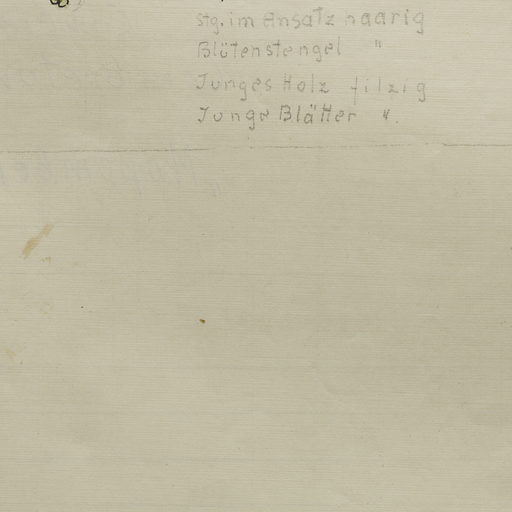 stg. im Ansatz haarig
Blütenstengel "
Junges Holz filzig
Junge Blätter ".